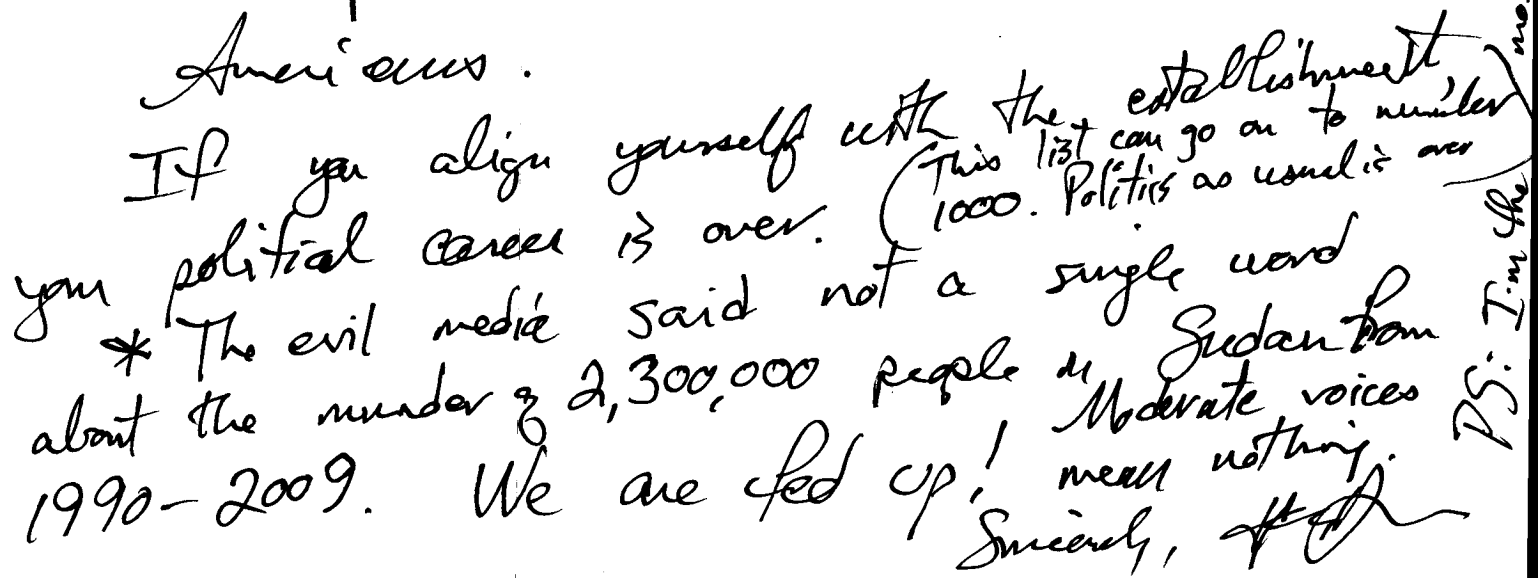 Americans.
If you align yourself with the establishment,
your political career is over. (This list can go on to number
1000. Politics as usual is over)
* The evil media said not a single word
about the murder of 2,300,000 people in Sudan from
1990-2009. We are fed up! Moderate voices
mean nothing.
Sincerely,
PS: I'm the